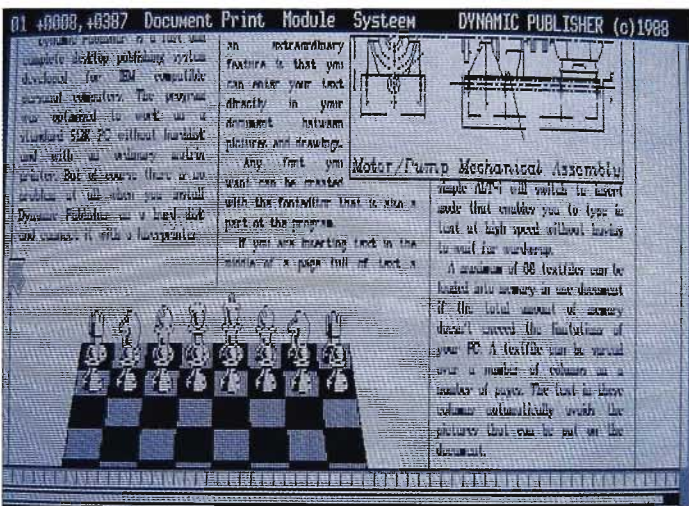 01 +0008,+0387 Document Print Module Systeem DYNAMIC PUBLISHER (c)1988
Dynamic Publisher is a fast and
complete desktop publishing system
developed for IBM compatible
personal computers. The program
was optimized to work on a
standard 512K PC without harddisk
and with an ordinary matrix
printer. But of course there is no
problem at all when you install
Dynamic Publisher on a hard disk
and connect it with a laserprinter.
an extraordinary
feature is that you
can enter your text
directly in your
document between
pictures and drawings.
Any font you
want can be created
with the fonteditor that is also a
part of the program.
If you are inserting text in the
middle of a page full of text a
Motor/Pump Mechanical Assembly
simple ALT-i will switch to insert
mode that enables you to type in
text at high speed without having
to wait for wordwrap.
A maximum of 88 textfiles can be
loaded into memory in one document
if the total amount of memory
doesn't exceed the limitations of
your PC. A textfile can be spread
over a number of columns on a
number of pages. The text in these
columns automatically avoids the
pictures that can be put on the
document.